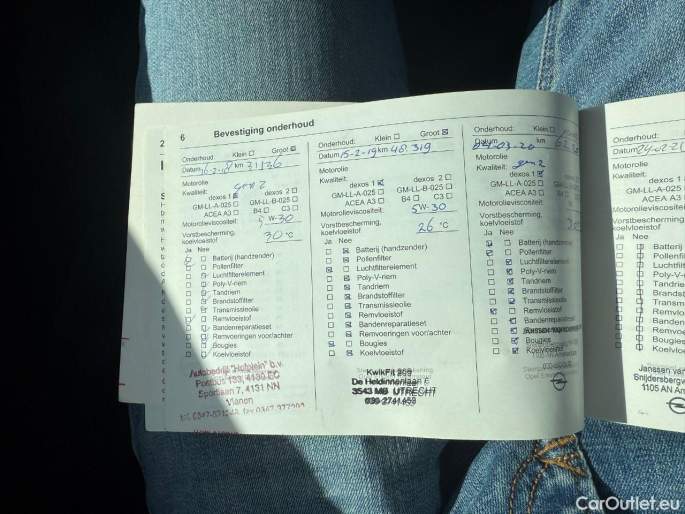 6 Bevestiging onderhoud
Onderhoud: Klein Groot
Datum 16-2-18 km 21136
Motorolie
Kwaliteit: gen 2
dexos 1 dexos 2
GM-LL-A-025 GM-LL-B-025
ACEA A3 B4 C3
Motorolieviscositeit: 5W-30
Vorstbescherming,
koelvloeistof 30 °C
Ja Nee
Batterij (handzender)
Pollenfilter
Luchtfilterelement
Poly-V-riem
Tandriem
Brandstoffilter
Transmissieolie
Remvloeistof
Bandenreparatieset
Remvoeringen voor/achter
Bougies
Koelvloeistof
Autobedrijf "Hofplein" b.v.
Postbus 133, 4130 EC
Sportlaan 7, 4131 NN
Vianen
Onderhoud: Klein Groot
Datum 15-2-19 km 48.319
Motorolie
Kwaliteit:
dexos 1 dexos 2
GM-LL-A-025 GM-LL-B-025
ACEA A3 B4 C3
Motorolieviscositeit: 5W-30
Vorstbescherming,
koelvloeistof 26 °C
Ja Nee
Batterij (handzender)
Pollenfilter
Luchtfilterelement
Poly-V-riem
Tandriem
Brandstoffilter
Transmissieolie
Remvloeistof
Bandenreparatieset
Remvoeringen voor/achter
Bougies
Koelvloeistof
KwikFit
De Heldinnenlaan
3543 MB UTRECHT
Onderhoud: Klein Groot
Datum 04-03-20 km
Motorolie
Kwaliteit: gen 2
dexos 1
GM-LL-A-025
ACEA A3
Motorolieviscositeit:
Vorstbescherming,
koelvloeistof
Ja Nee
Batterij (handzender)
Pollenfilter
Luchtfilterelement
Poly-V-riem
Tandriem
Brandstoffilter
Transmissieolie
Remvloeistof
Bandenreparatieset
Bougies
Koelvloeistof
Onderhoud:
Datum 24-02-21
Motorolie
Kwaliteit:
dexos 1
GM-LL-A-025
ACEA A3
Vorstbescherming,
koelvloeistof
Ja Nee
Batterij
Tandriem
Bougies
Janssen van
Snijdersbergweg
1105 AN
CarOutlet.eu